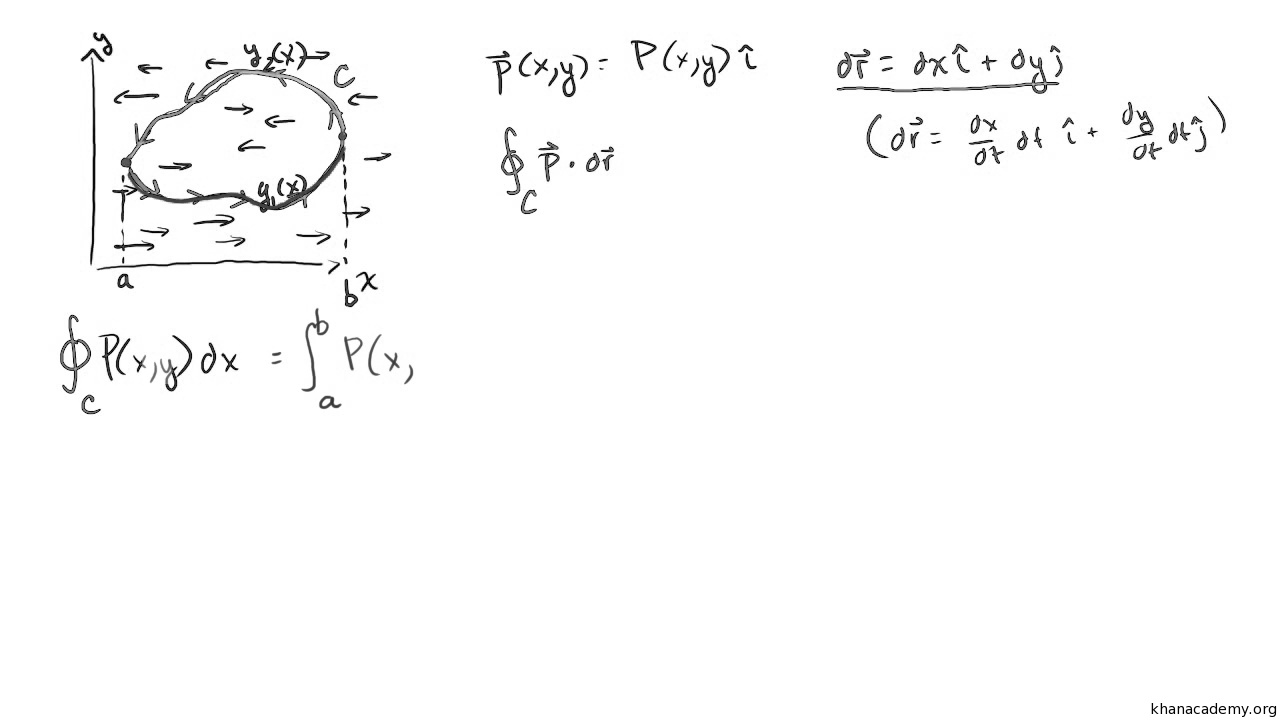 y
y₂(x)
C
y₁(x)
a
b
x
P⃗(x,y) = P(x,y) î
∮_C P⃗ · dr⃗
dr⃗ = dx î + dy ĵ
(dr⃗ = dx/dt dt î + dy/dt dt ĵ)
∮_C P(x,y) dx = ∫_a^b P(x,
khanacademy.org